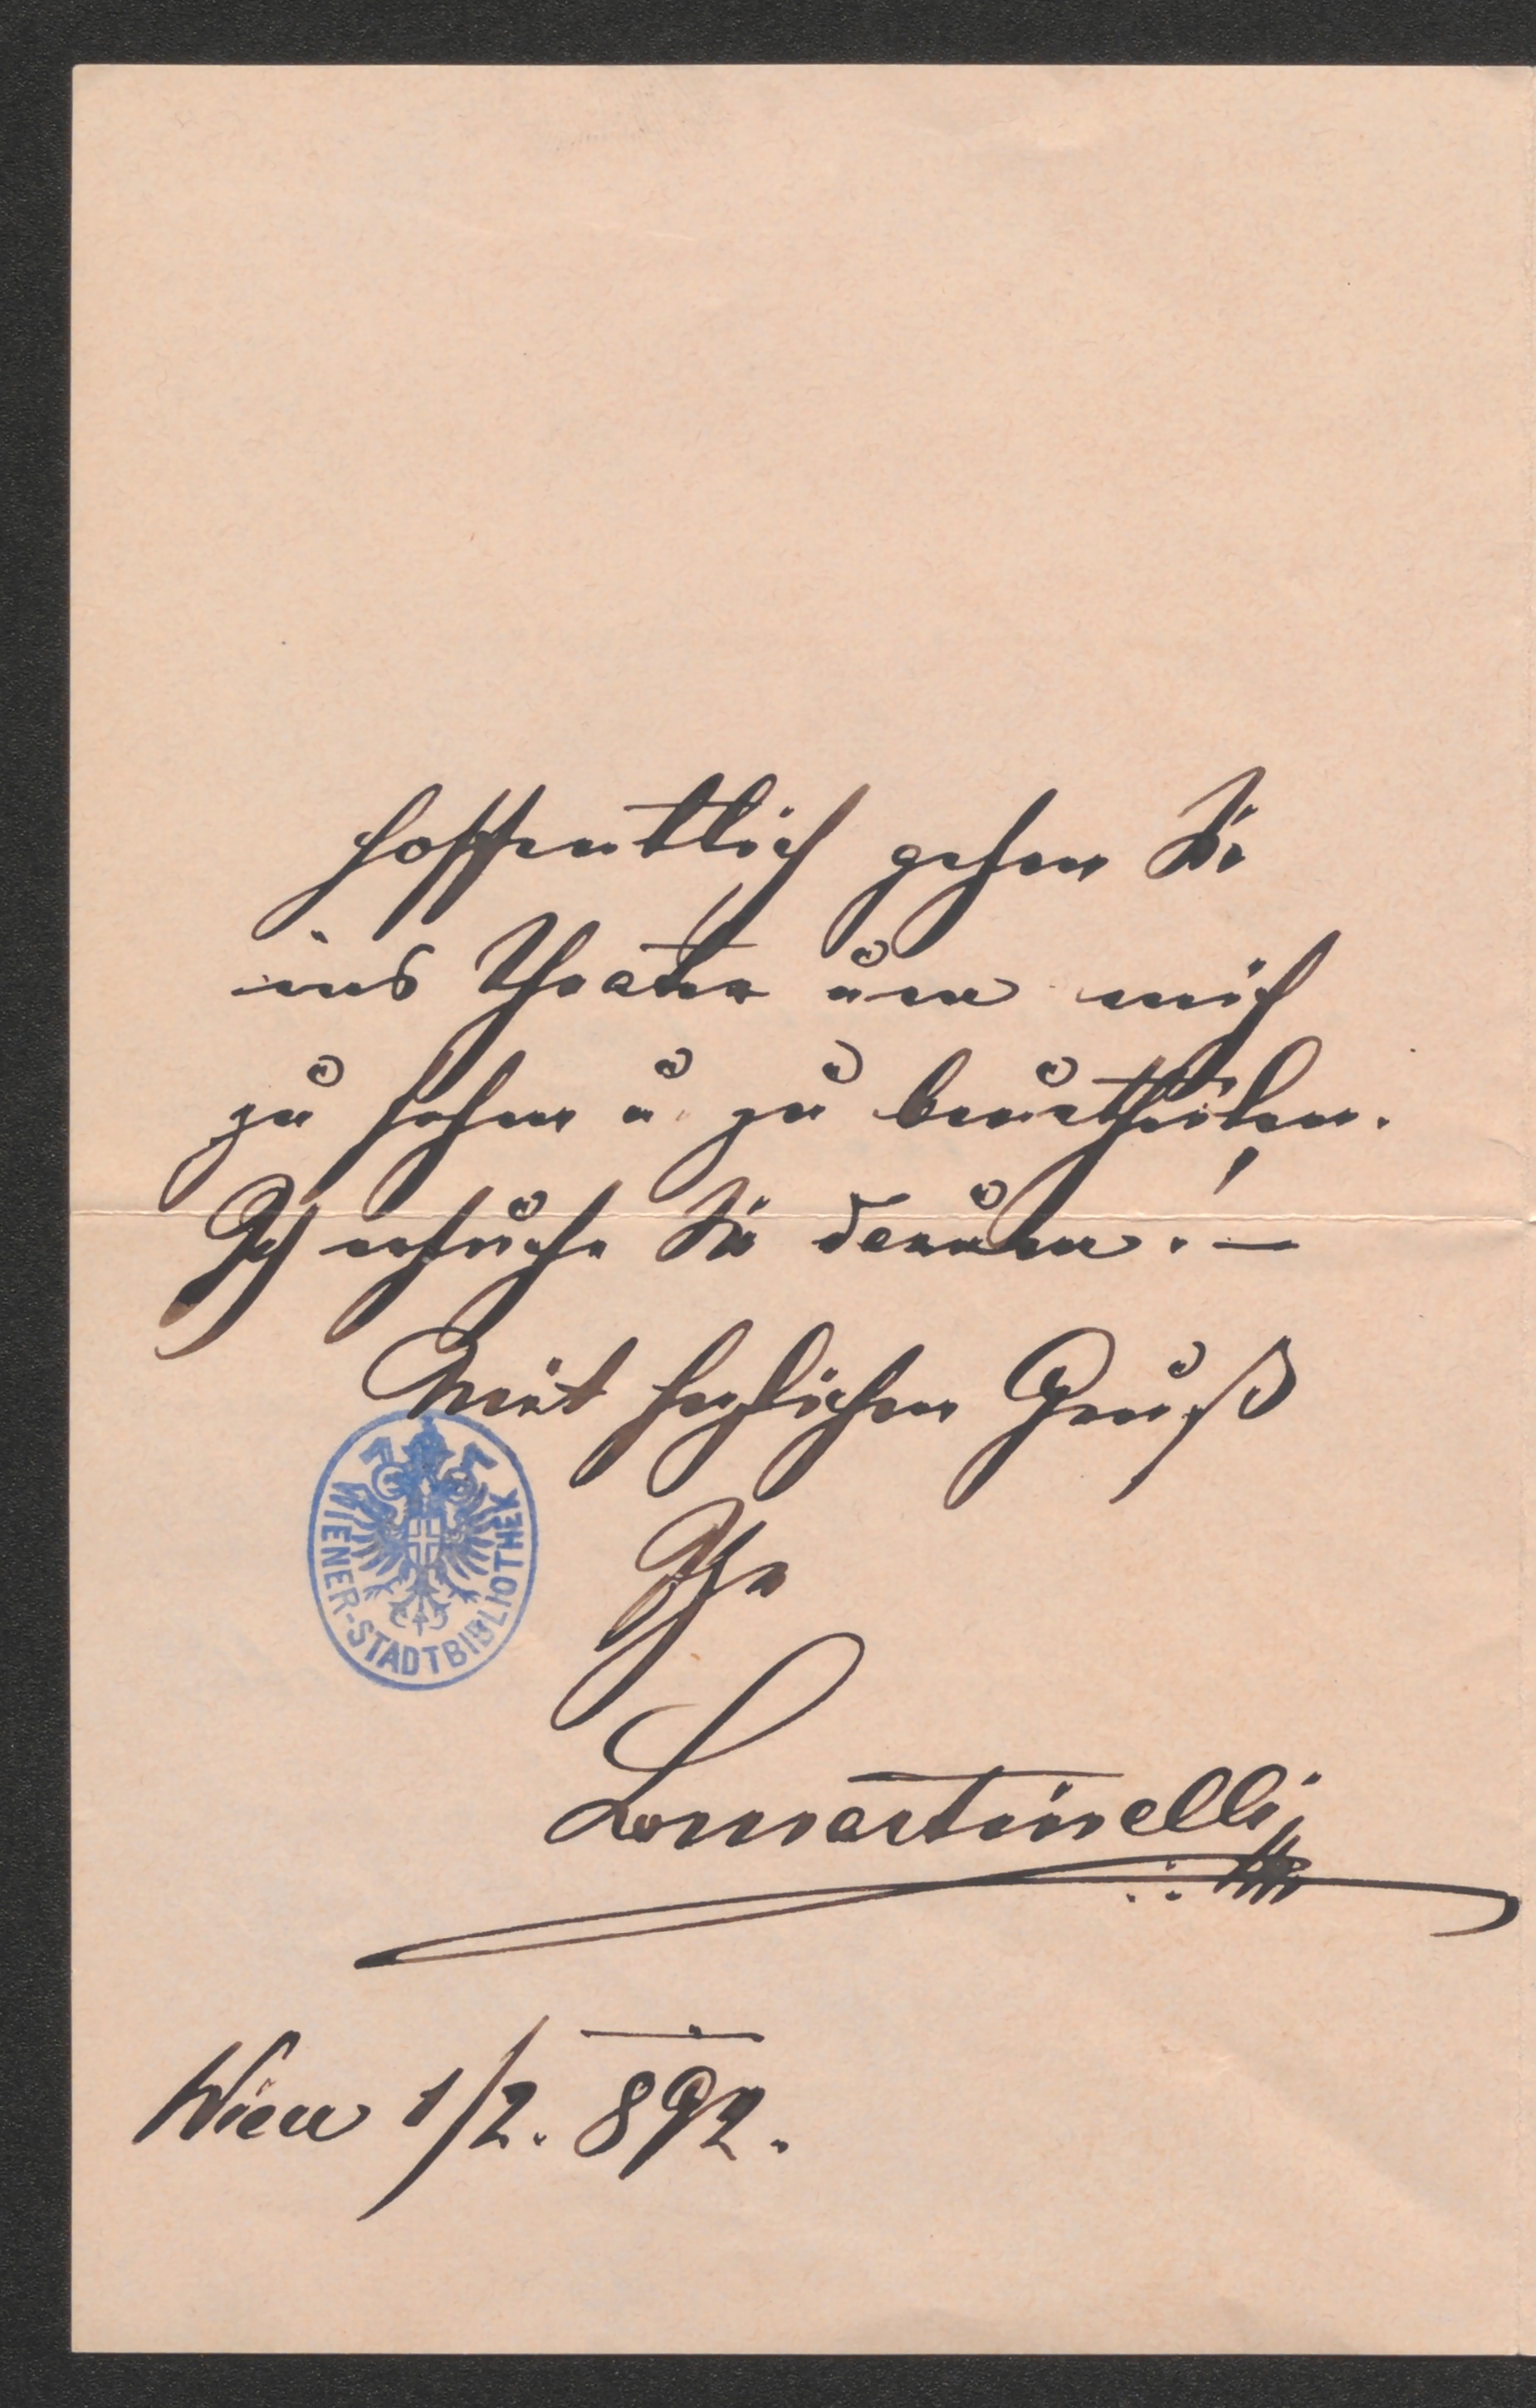 hoffentlich gehen Sie
ins Theater um mich
zu sehen u. zu beurtheilen.
Ich ersuche Sie darum! –
Mit herzlichem Gruß
Ihr
LMartinelli
WIENER-STADTBIBLIOTHEK
Wien 1/2. 892.